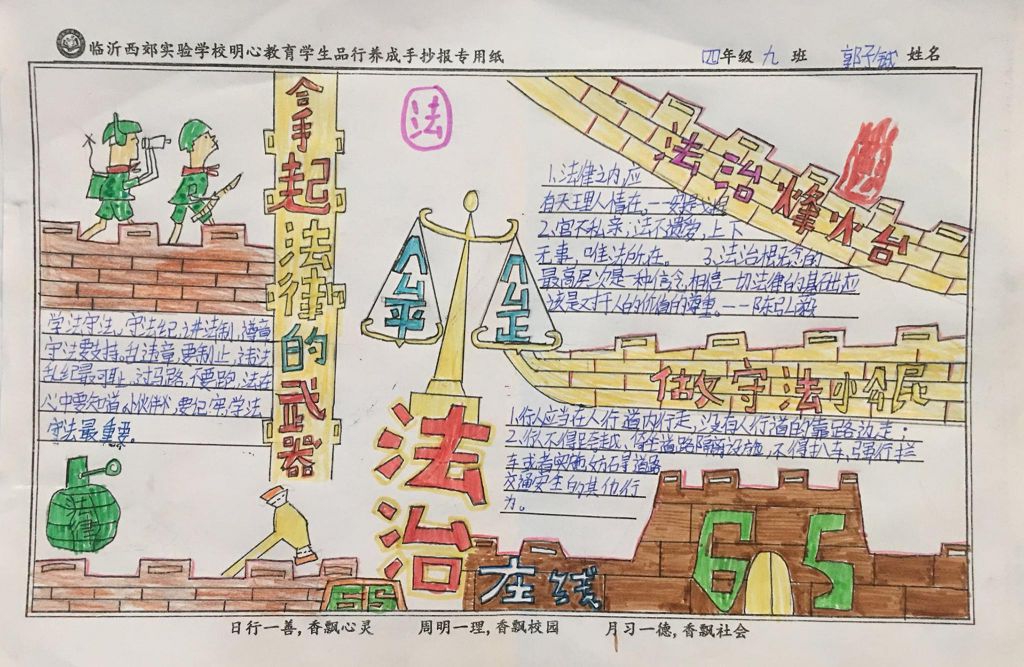 临沂西郊实验学校明心教育学生品行养成手抄报专用纸
四年级 九 班 郭子 姓名
拿起法律的武器
法
法治烽火台
公平
公正
学法守法,守法纪,讲法制,遵章
守法要支持。乱违章,要制止,违法
乱纪最可耻。过马路,不要跑,法在
心中要知道。小伙伴,要记牢,学法
守法最重要。
1.法律之内,应
有天理人情在。——安
2.官不私亲,法不遗爱,上下
无事,唯法所在。 3.法治概念的
最高层次是一种信念,相信一切法律的基础,应
该是对于人的价值的尊重。——陈弘毅
做守法小公民
1.行人应当在人行道内行走,没有人行道的靠路边走;
2.你不得跨越、倚坐道路隔离设施,不得扒车、强行拦
车或者实施妨碍道路
交通安全的其他行
为。
法治
在线
66
65
日行一善,香飘心灵 周明一理,香飘校园 月习一德,香飘社会